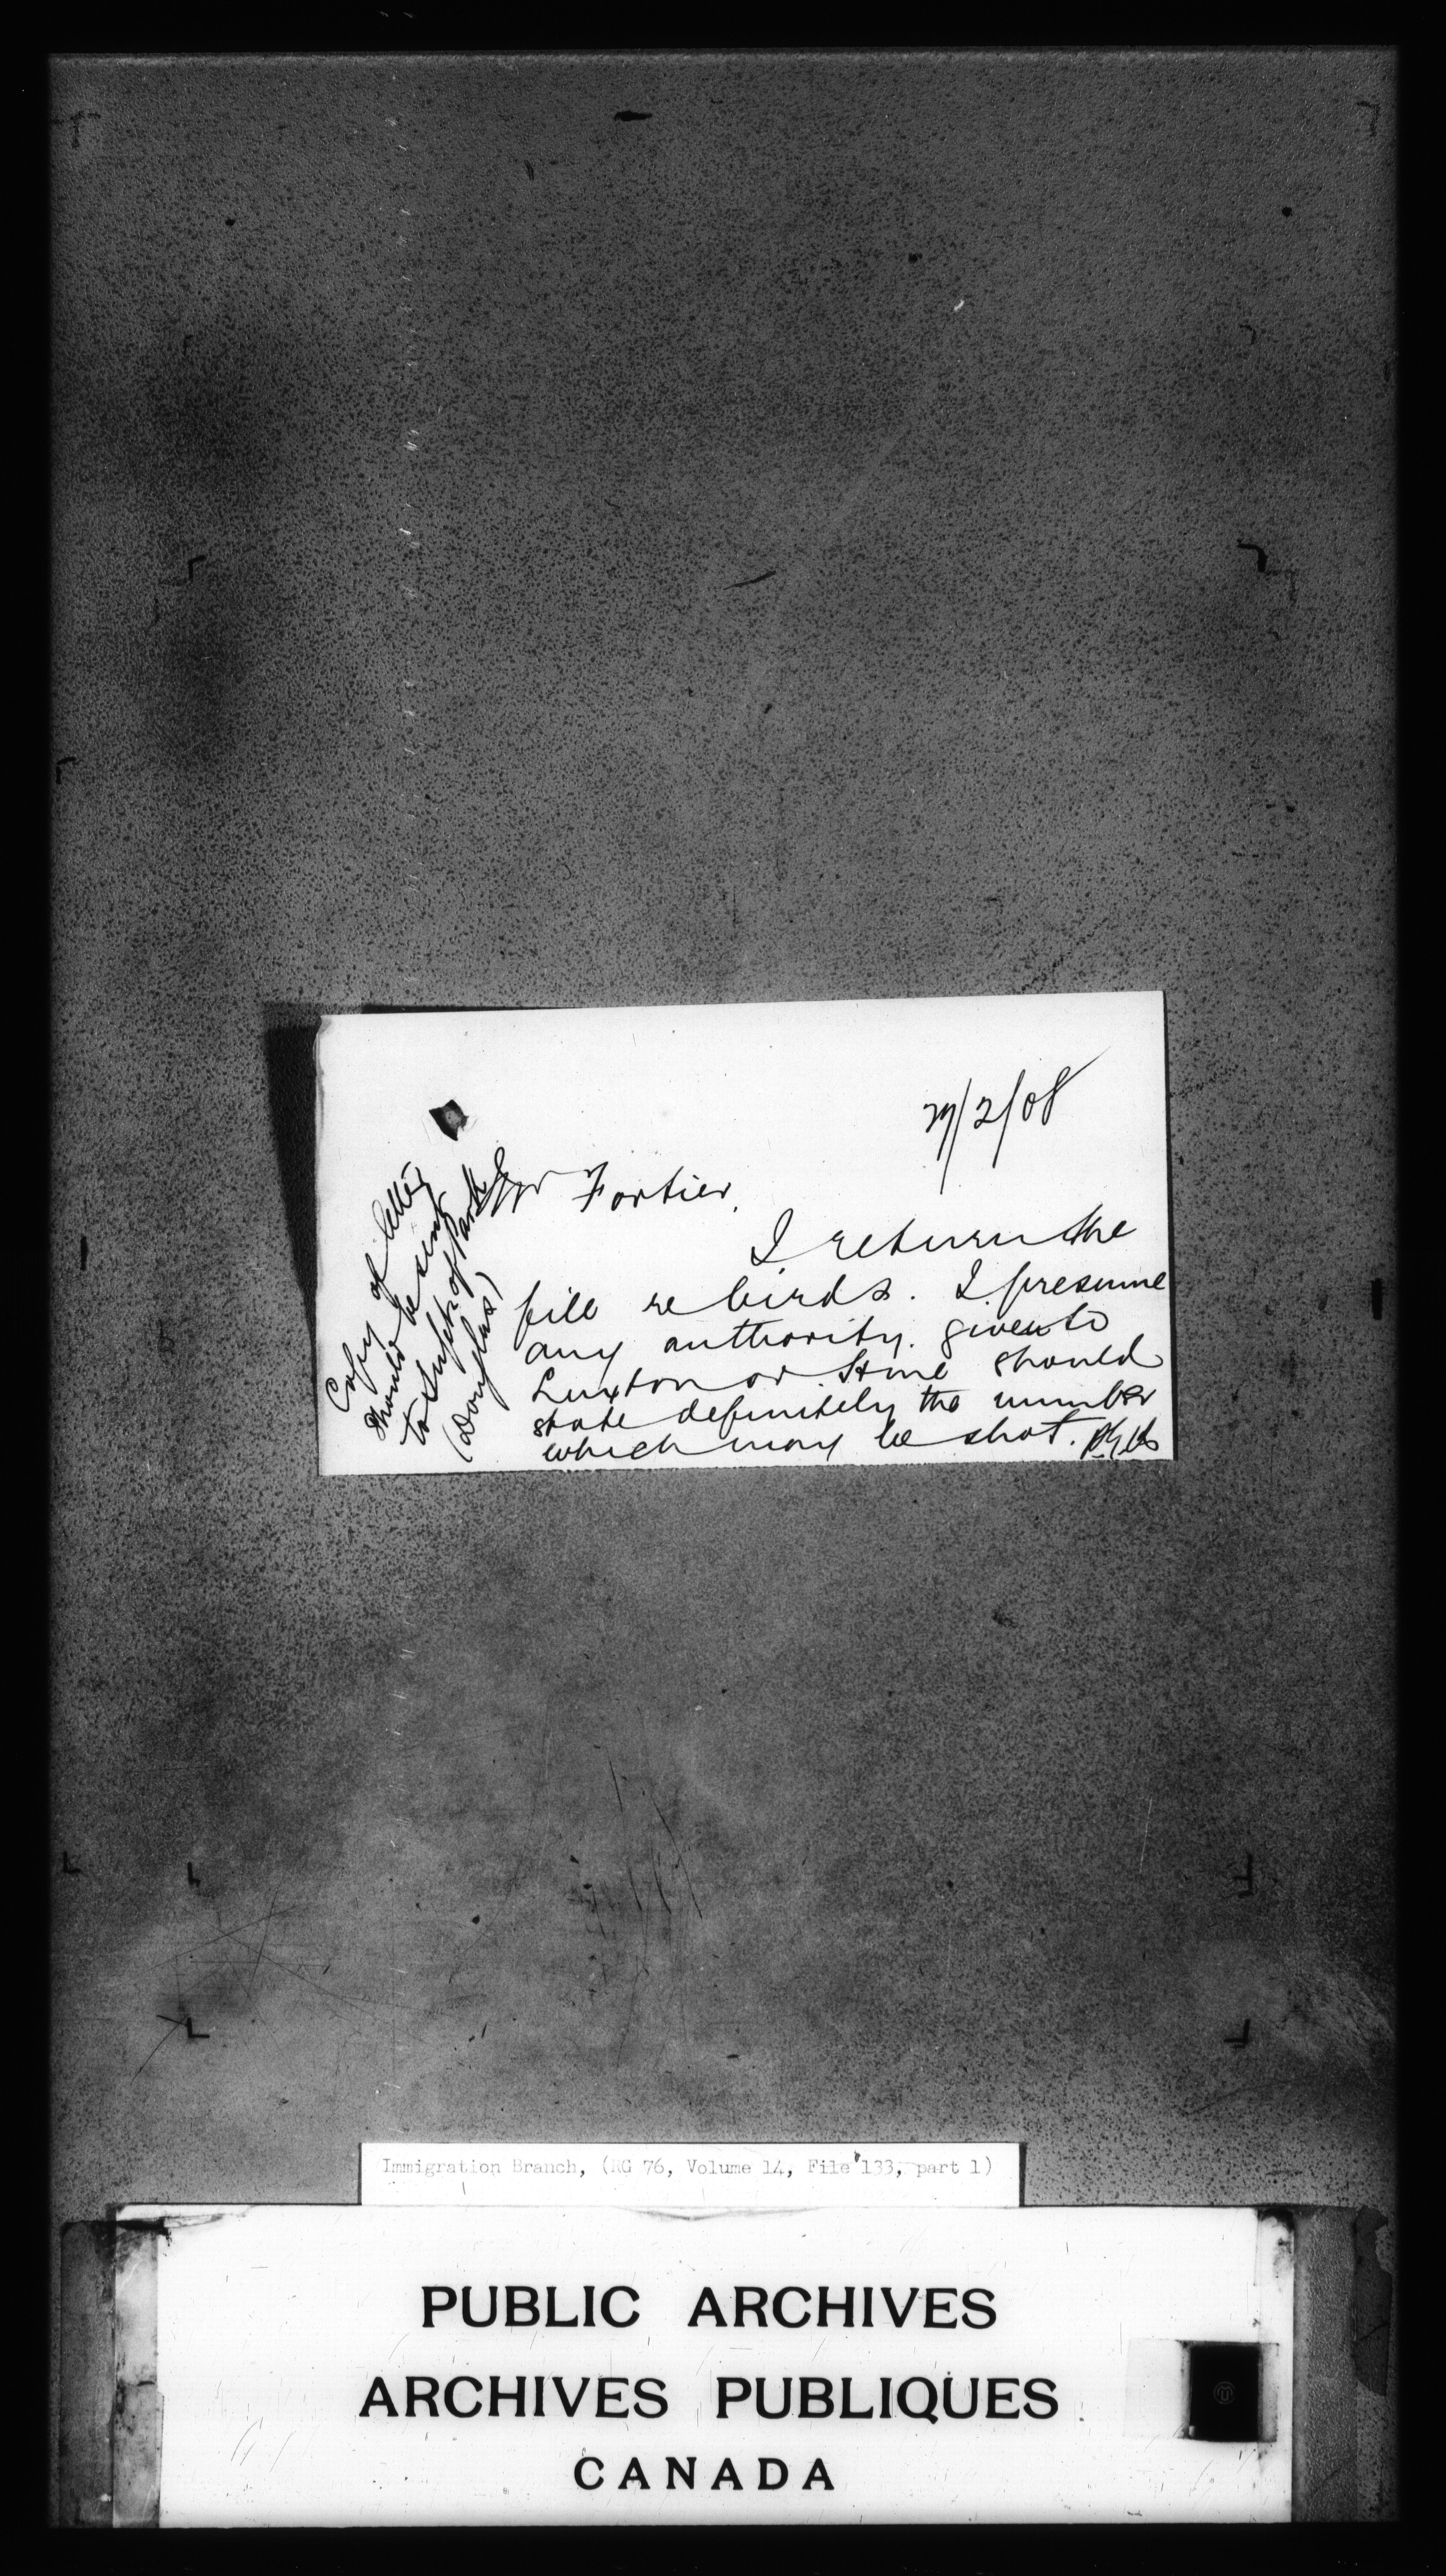 27/2/08
Mr Fortier,
I return the
file re birds. I presume
any authority given to
Luxton or Stine should
state definitely the number
which may be shot.
Copy of letter
should be sent
to Supt. of Park
(Douglas)
Immigration Branch, (RG 76, Volume 14, File 133, part 1)
PUBLIC ARCHIVES
ARCHIVES PUBLIQUES
CANADA